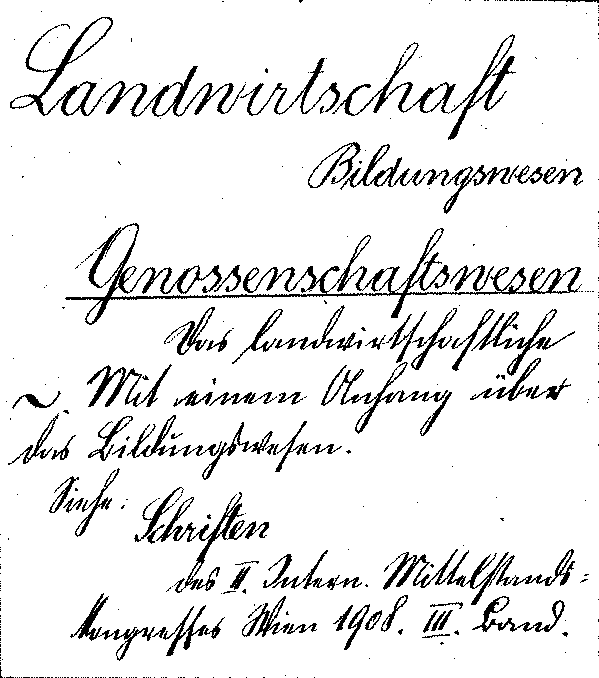 Landwirtschaft
Bildungswesen
Genossenschaftswesen
Das landwirtschaftliche
~ Mit einem Anhang über
das Bildungswesen.
Siehe:
Schriften
des II. Intern. Mittelstands-
kongresses Wien 1908. III. Band.